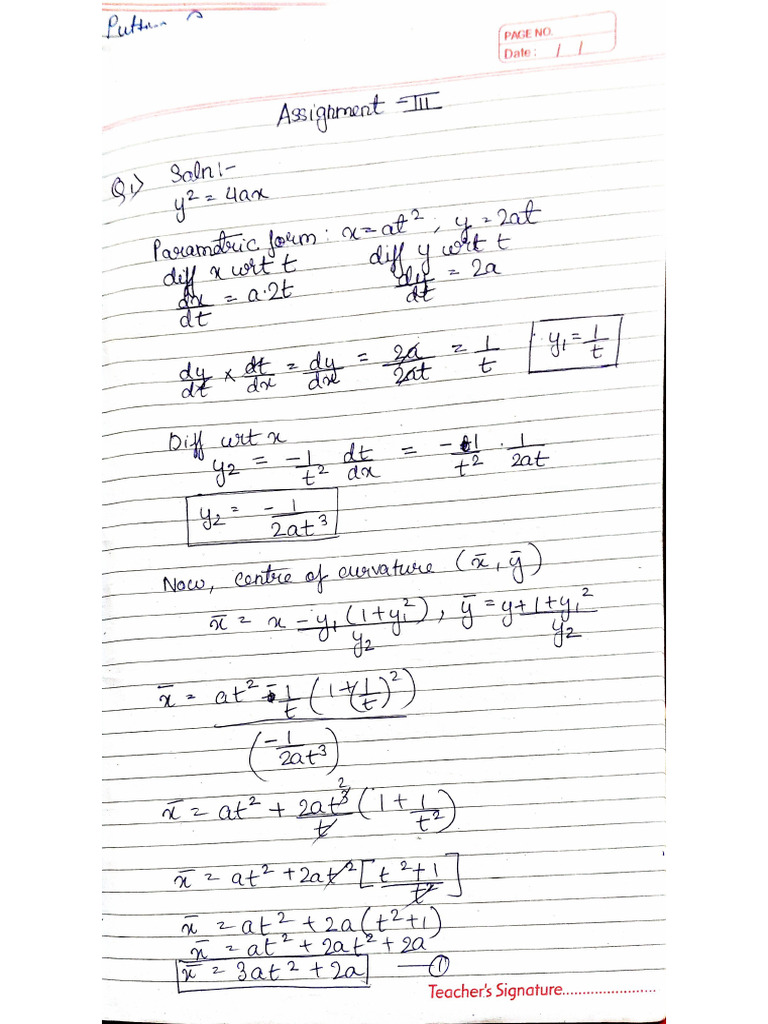 PAGE NO.
Date: / /
Assignment - III
Q1) Soln:-
y² = 4ax
Parametric form: x = at², y = 2at
diff x wrt t diff y wrt t
dx/dt = a·2t dy/dt = 2a
dy/dt × dt/dx = dy/dx = 2a/2at = 1/t y₁ = 1/t
Diff wrt x
y₂ = -1/t² dt/dx = -1/t² · 1/2at
y₂ = -1/2at³
Now, centre of curvature (x̄, ȳ)
x̄ = x - y₁(1+y₁²)/y₂, ȳ = y + 1+y₁²/y₂
x̄ = at² - 1/t (1+(1/t)²)/(-1/2at³)
x̄ = at² + 2at³/t (1 + 1/t²)
x̄ = at² + 2at² [t²+1/t²]
x̄ = at² + 2a(t²+1)
x̄ = at² + 2at² + 2a
x̄ = 3at² + 2a —①
Teacher's Signature........................